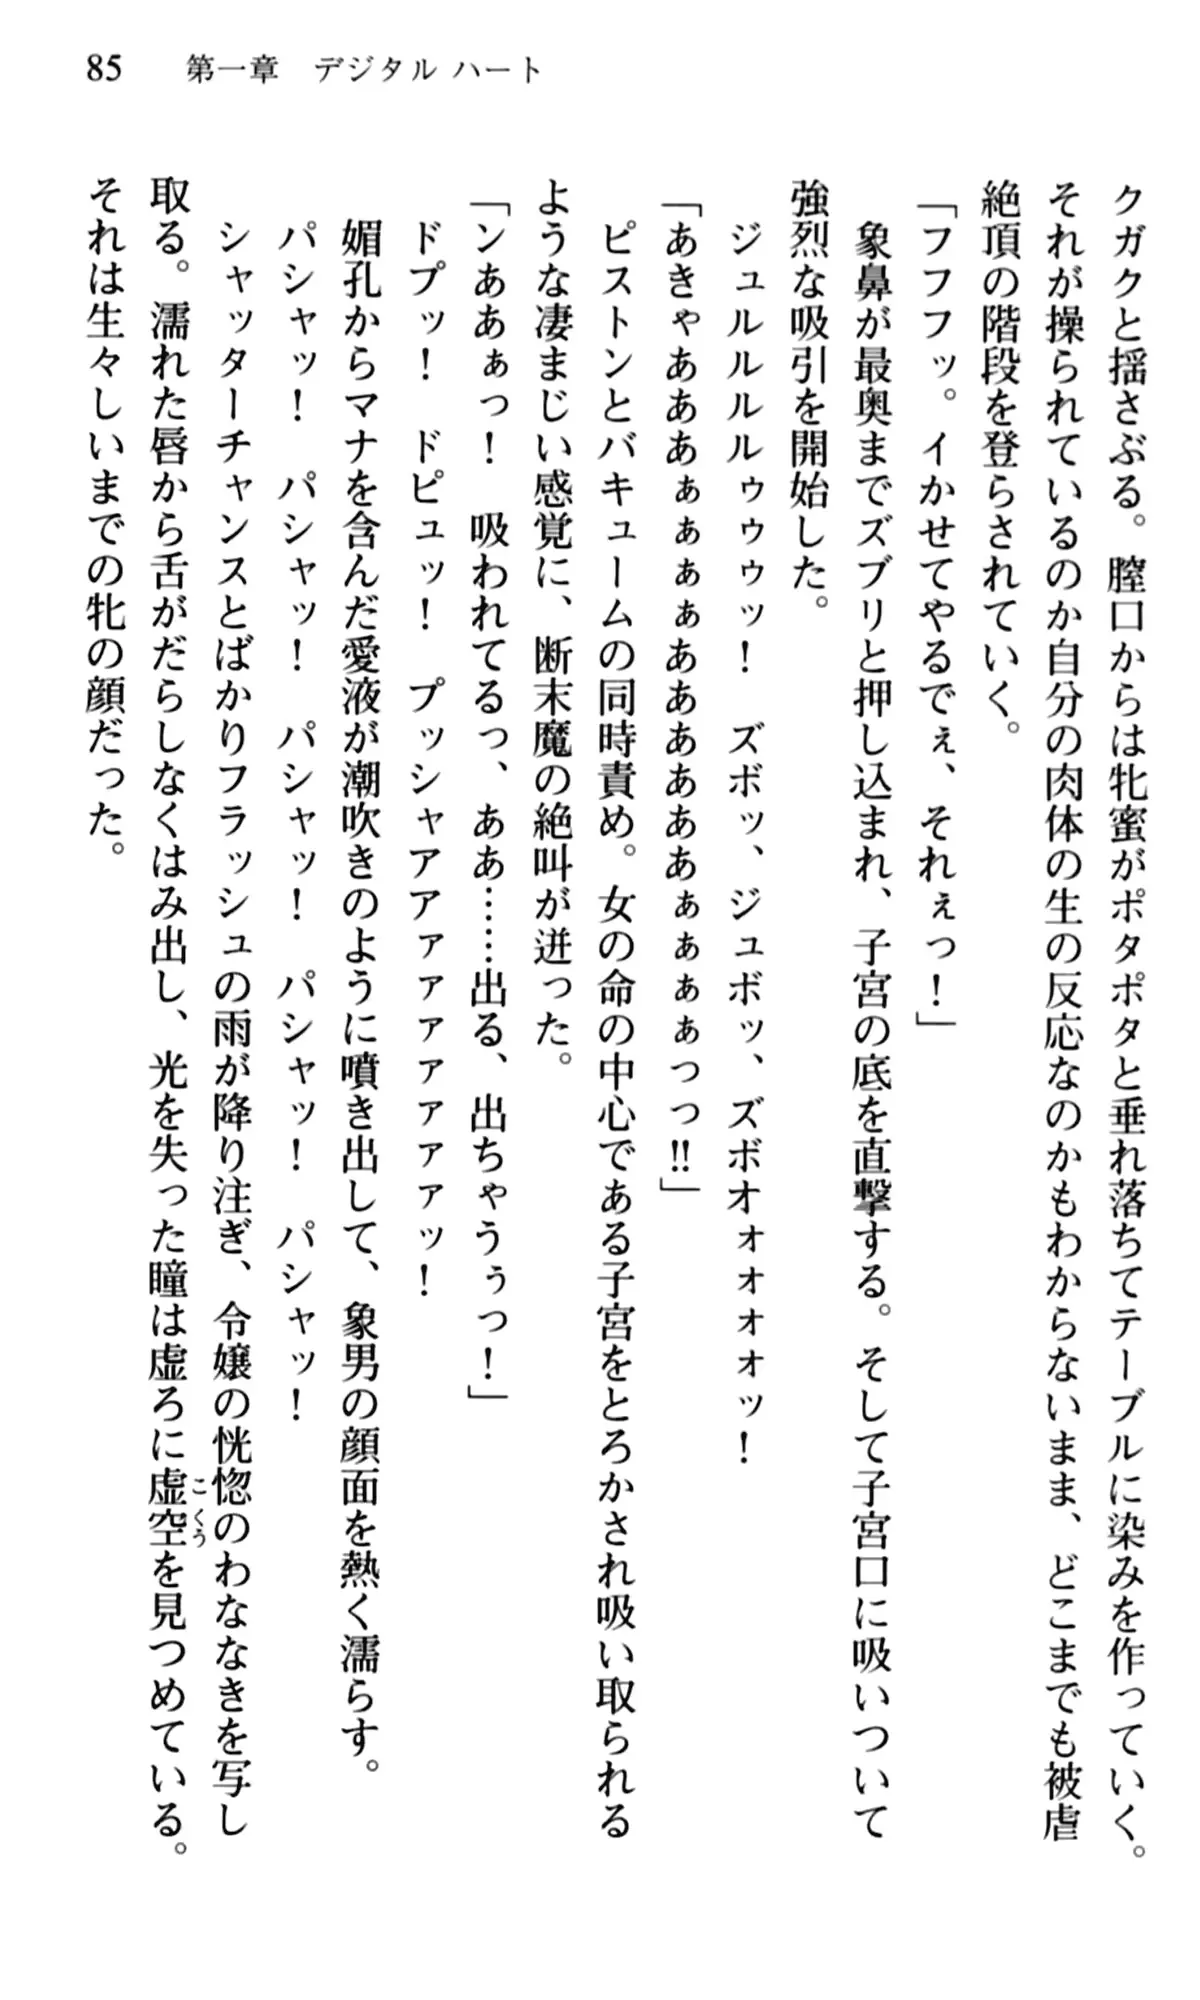 85　第一章　デジタル ハート
クガクと揺さぶる。膣口からは牝蜜がポタポタと垂れ落ちてテーブルに染みを作っていく。
それが操られているのか自分の肉体の生の反応なのかもわからないまま、どこまでも被虐
絶頂の階段を登らされていく。
「フフフッ。イかせてやるでぇ、それぇっ！」
　象鼻が最奥までズブリと押し込まれ、子宮の底を直撃する。そして子宮口に吸いついて
強烈な吸引を開始した。
　ジュルルルルゥゥゥッ！　ズボッ、ジュボッ、ズボオォォォォッ！
「あきゃあああぁぁぁぁああああああぁぁぁぁっっ!!」
　ピストンとバキュームの同時責め。女の命の中心である子宮をとろかされ吸い取られる
ような凄まじい感覚に、断末魔の絶叫が迸った。
「ンああぁっ！　吸われてるっ、ああ……出る、出ちゃうぅっ！」
　ドプッ！　ドピュッ！　プッシャアアァァァァァァァッ！
　媚孔からマナを含んだ愛液が潮吹きのように噴き出して、象男の顔面を熱く濡らす。
　パシャッ！　パシャッ！　パシャッ！　パシャッ！　パシャッ！
　シャッターチャンスとばかりフラッシュの雨が降り注ぎ、令嬢の恍惚のわななきを写し
取る。濡れた唇から舌がだらしなくはみ出し、光を失った瞳は虚ろに虚空（こくう）を見つめている。
それは生々しいまでの牝の顔だった。